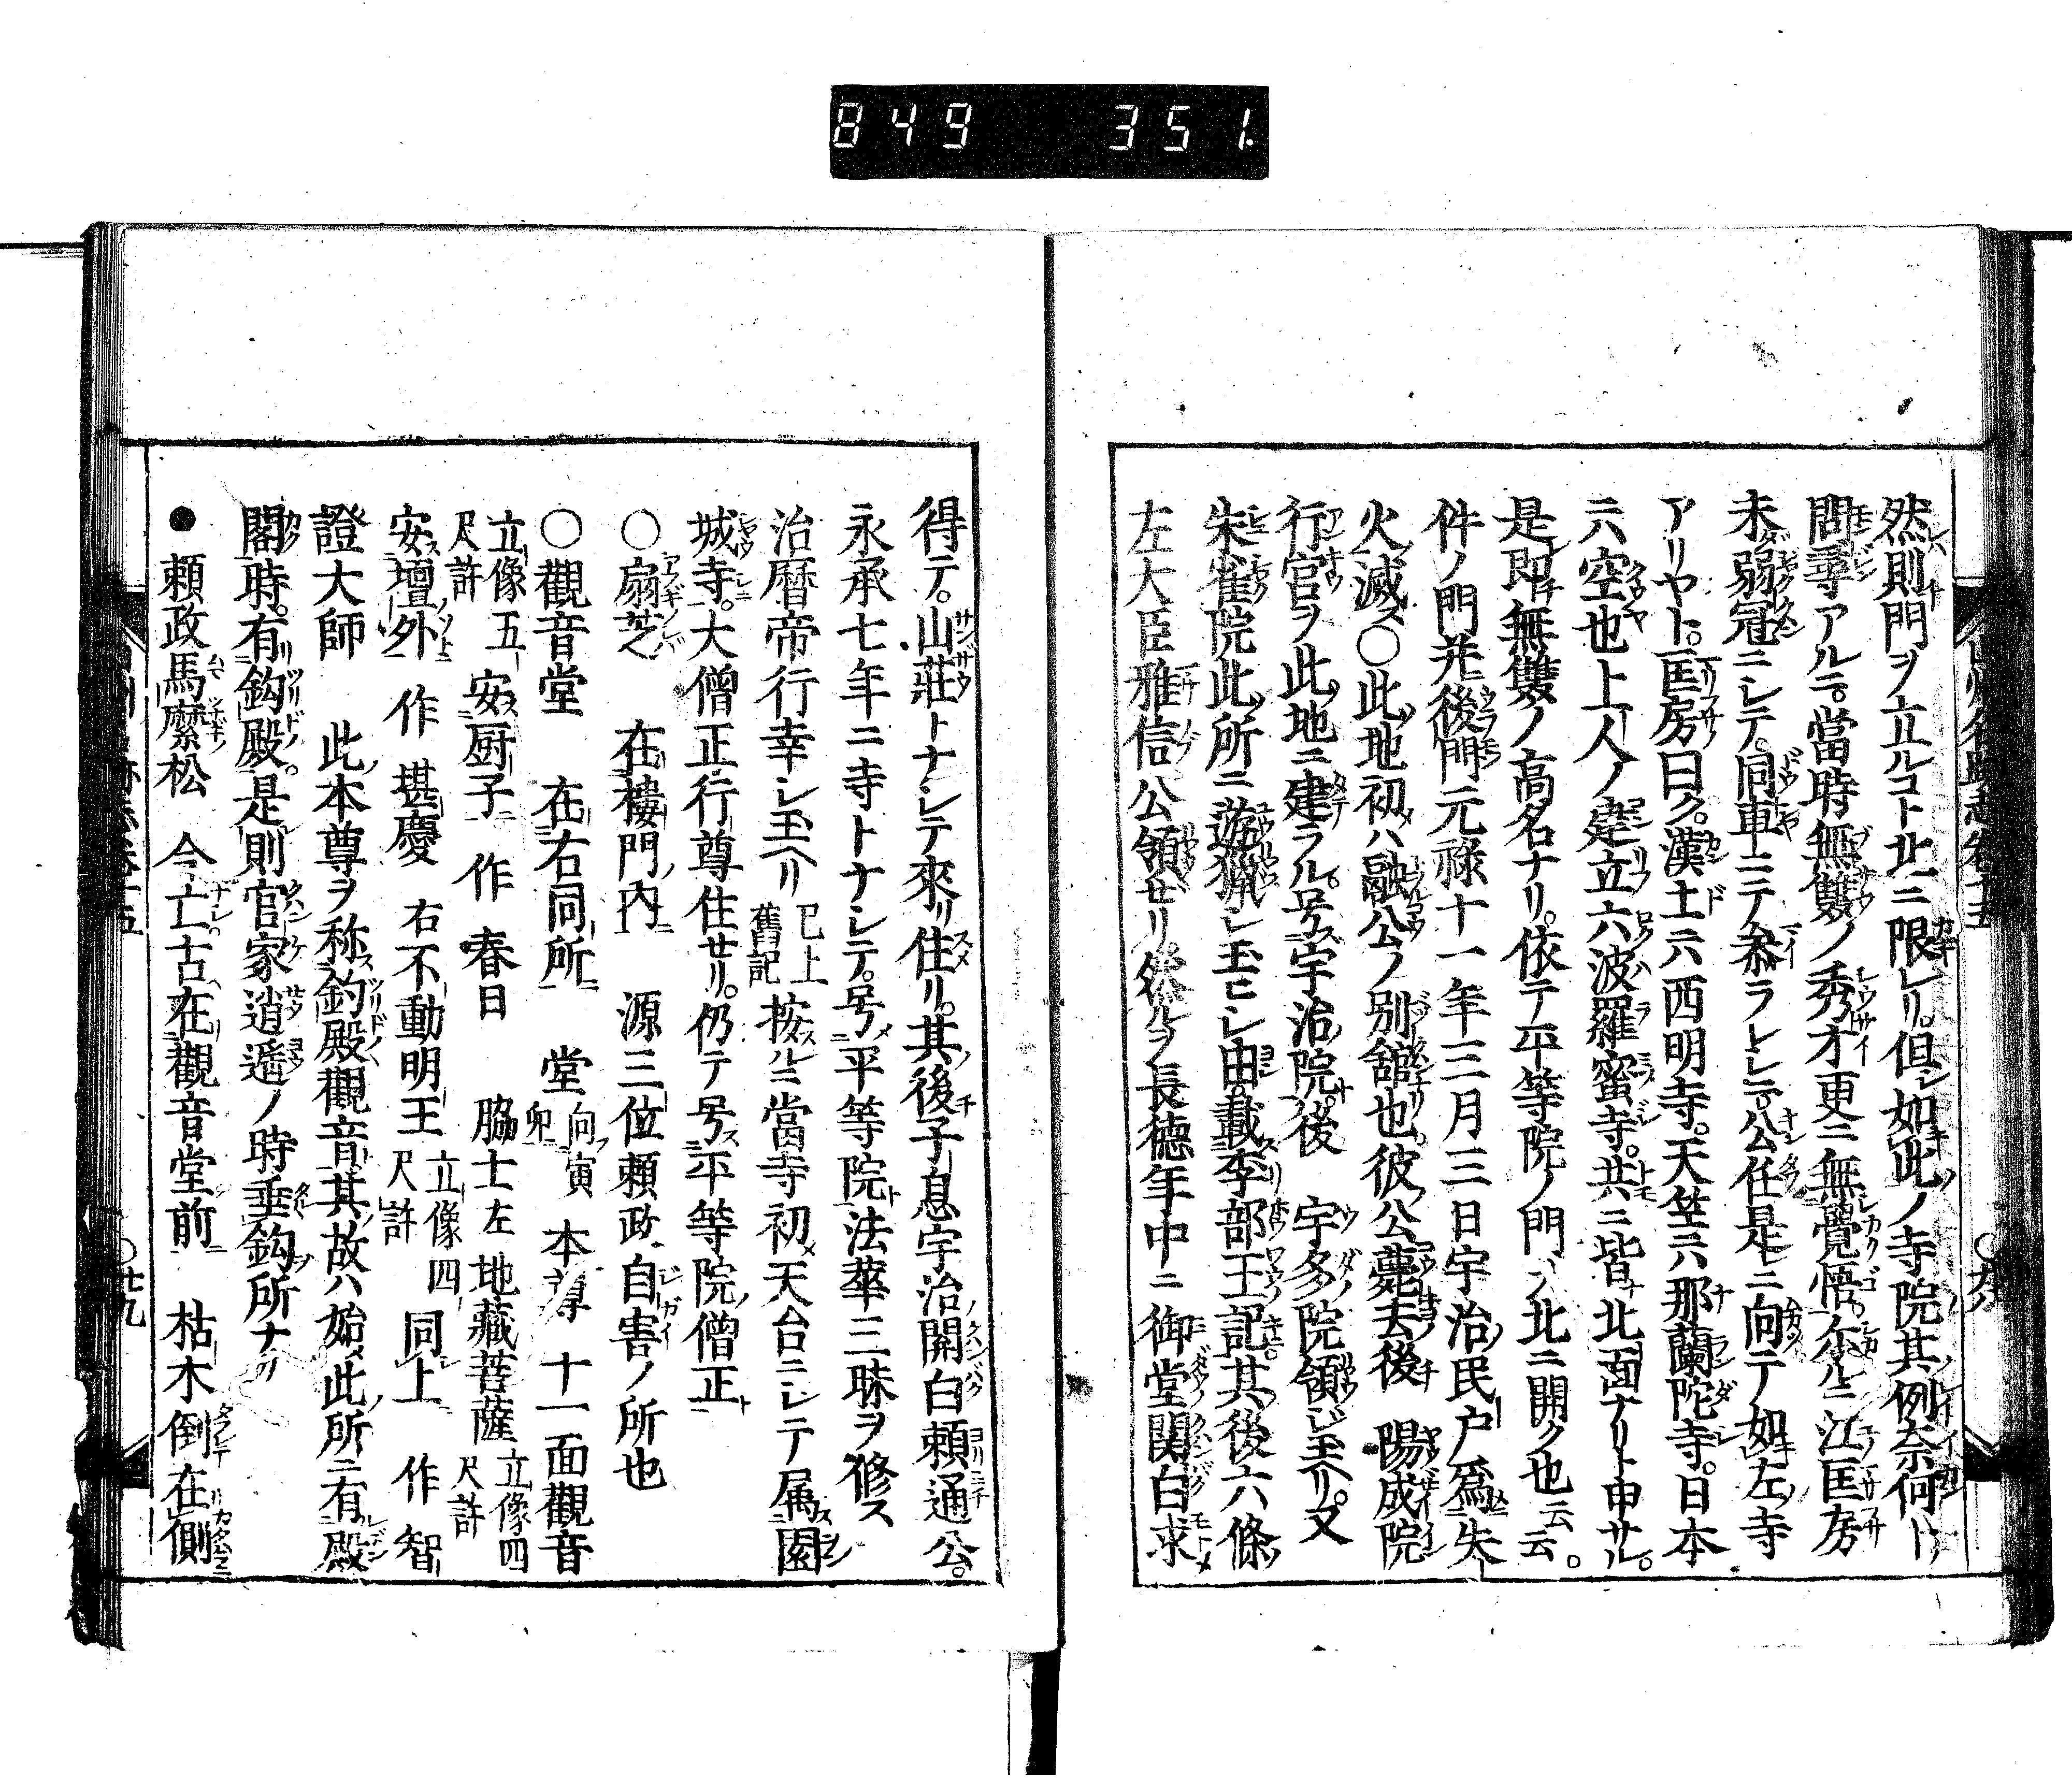 849 351.
然則門ヲ立ルコト北ニ限レリ。但シ如此ノ寺院其例奈何ト
問尋アルニ。當時無雙ノ秀才更ニ無覺悟。尓ルニ江匡房
未弱冠ニシテ。同車ニテ參ラレシテ。公任是ニ向テ如左ノ寺
アリヤト。匡房曰ク。漢土ニハ西明寺。天竺ニハ那蘭陀寺。日本
ニハ空也上人ノ建立六波羅蜜寺。共ニ皆北面ナリト申サル。
是即無雙ノ高名ナリ。依テ平等院ノ門ハ北ニ開ク也云云。
件ノ門并後門元祿十一年三月三日宇治民戸爲失
火滅ス〇此地初ハ融公ノ別舘也。彼公薨去後 陽成院
行宮ヲ此地ニ建ラル。号ス宇治院。後 宇多院領シ玉ヘリ。又
朱雀院此所ニ遊獵シ玉ヒシ由。載李部王記。其後六條
左大臣雅信公領セリ。然ルヲ長德年中ニ御堂関白求
得テ。山莊トナシテ來リ住リ。其後子息宇治關白頼通公。
永承七年ニ寺トナシテ。号平等院法華三昧ヲ修ス
治暦帝行幸シ玉ヘリ 已上舊記 按ルニ當寺初天台ニシテ属園
城寺。大僧正行尊住セリ。仍テ号平等院僧正
〇扇芝 在樓門内 源三位頼政自害ノ所也
〇觀音堂 在右同所 堂 向寅卯 本尊 十一面觀音
立像五尺許 安厨子 作 春日 脇士左 地藏菩薩 立像四尺許
安壇外 作 堪慶 右不動明王 立像四尺許 同上 作 智
證大師 此本尊ヲ称釣殿觀音。其故ハ始此所ニ有殿
閣時。有鈎殿。是則官家逍遥ノ時垂鈎所ナリ
● 頼政馬縻松 今亡古在觀音堂前 枯木倒在側